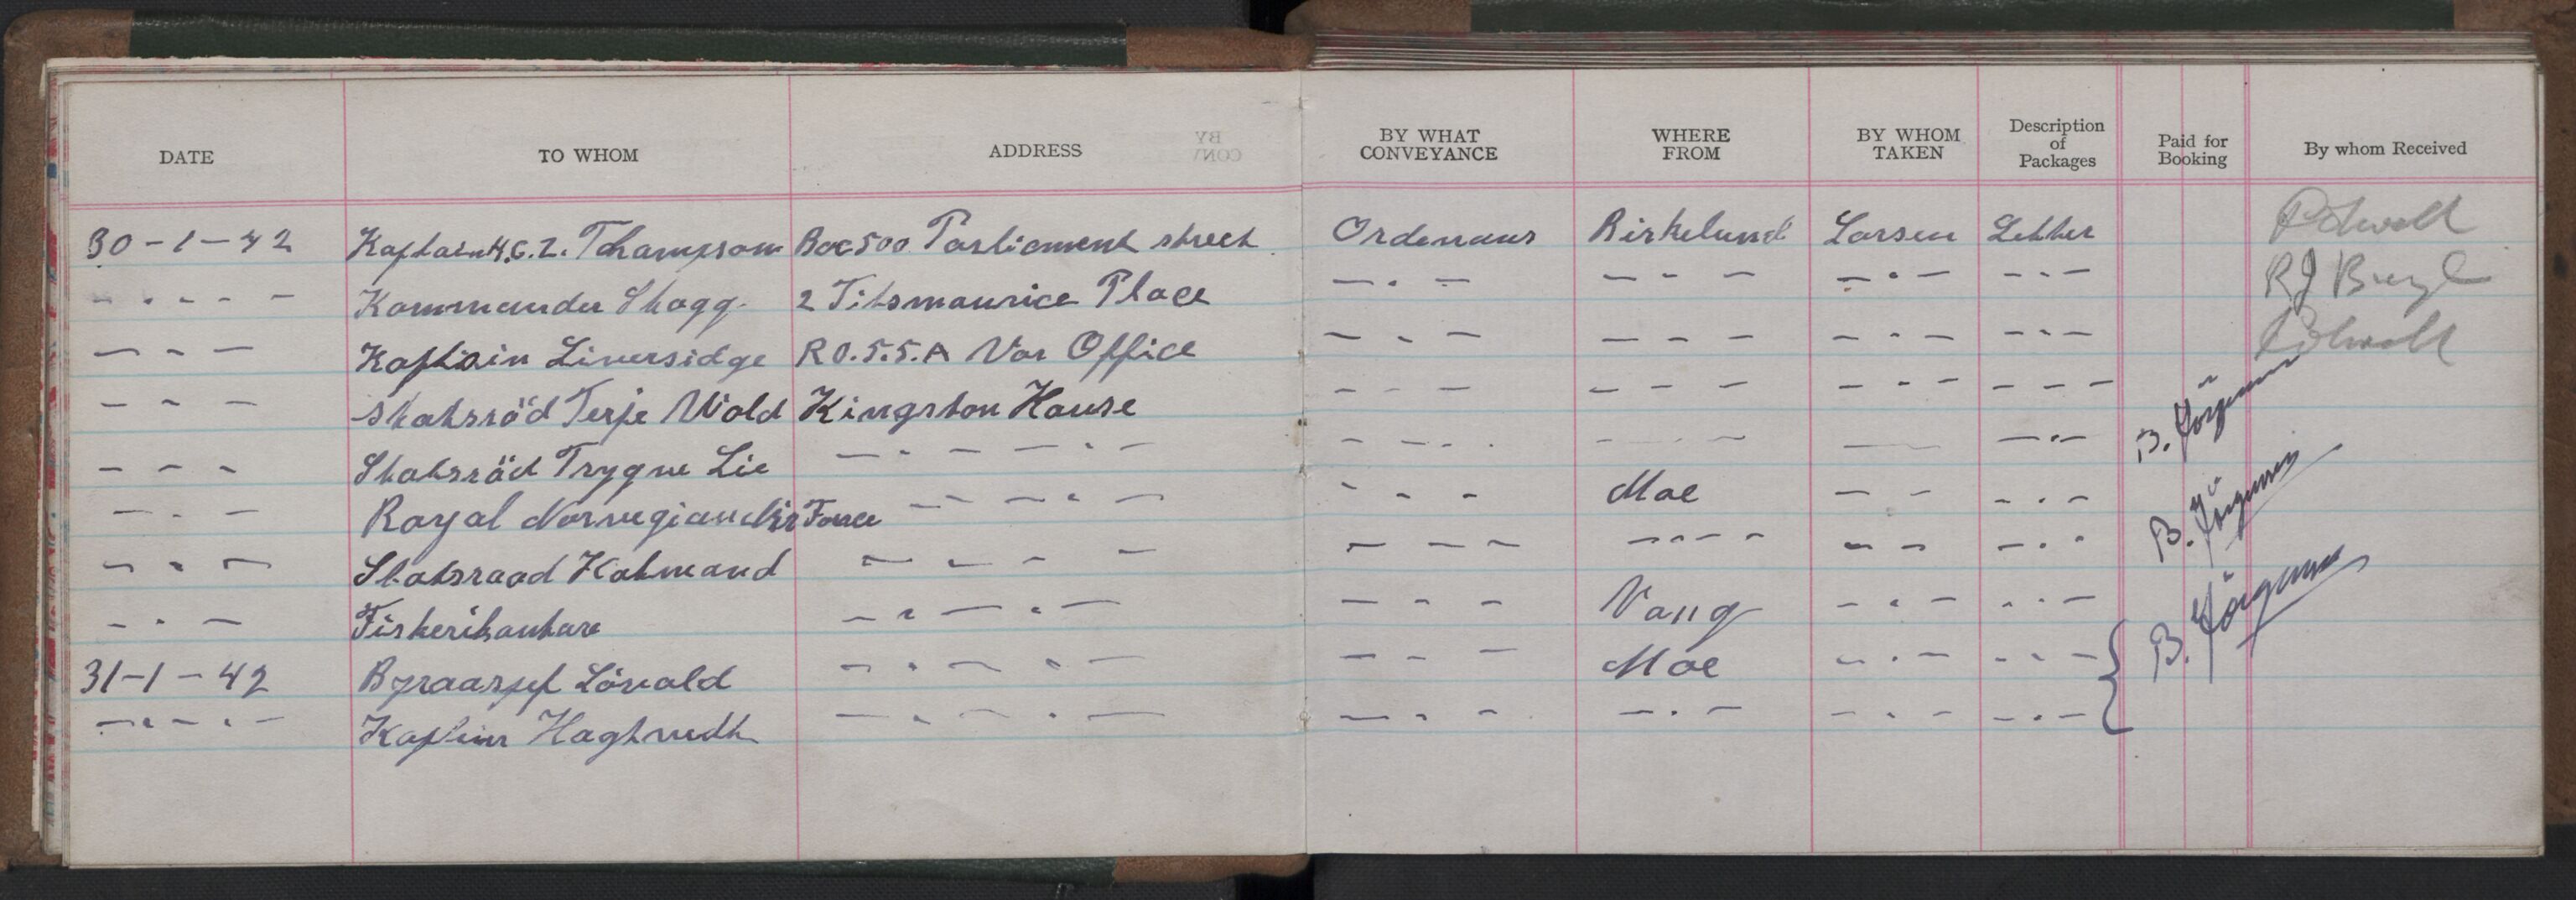 DATE TO WHOM ADDRESS BY WHAT CONVEYANCE WHERE FROM BY WHOM TAKEN Description of Packages Paid for Booking By whom Received
30-1-42 Kaptain H.G.Z. Thampson Box 500 Parliament street Ordenans Birkelund Larsen Letter
- . - . - Kommander Skagg 2 Fitsmaurice Place - . - - - - - . - - - -
- - - Kaptain Liversidge R0.5.5.A Var Office - - - - - - - . - - - -
- - - Statsråd Terje Wold Kingston House - - - - - - - - - - - - B. Jörgensen
- - - Statsråd Trygve Lie - . - - . - - - - . - - - - - . -
- - - Royal Norvegian Air Force - - - . - - - - Moe - - - . - B. Jörgensen
- - - Statsraad Hatmand - - - - - - - - - - - - - - . .
- . - Fiskerikontore - . - . - - - - Vang - . - . . - B. Jörgensen
31-1-42 Byraasjef Lövald - . - . - - - - Moe - . - - . -
- . - . - Haghvedt - . - . - - . - - . - - . - - . -